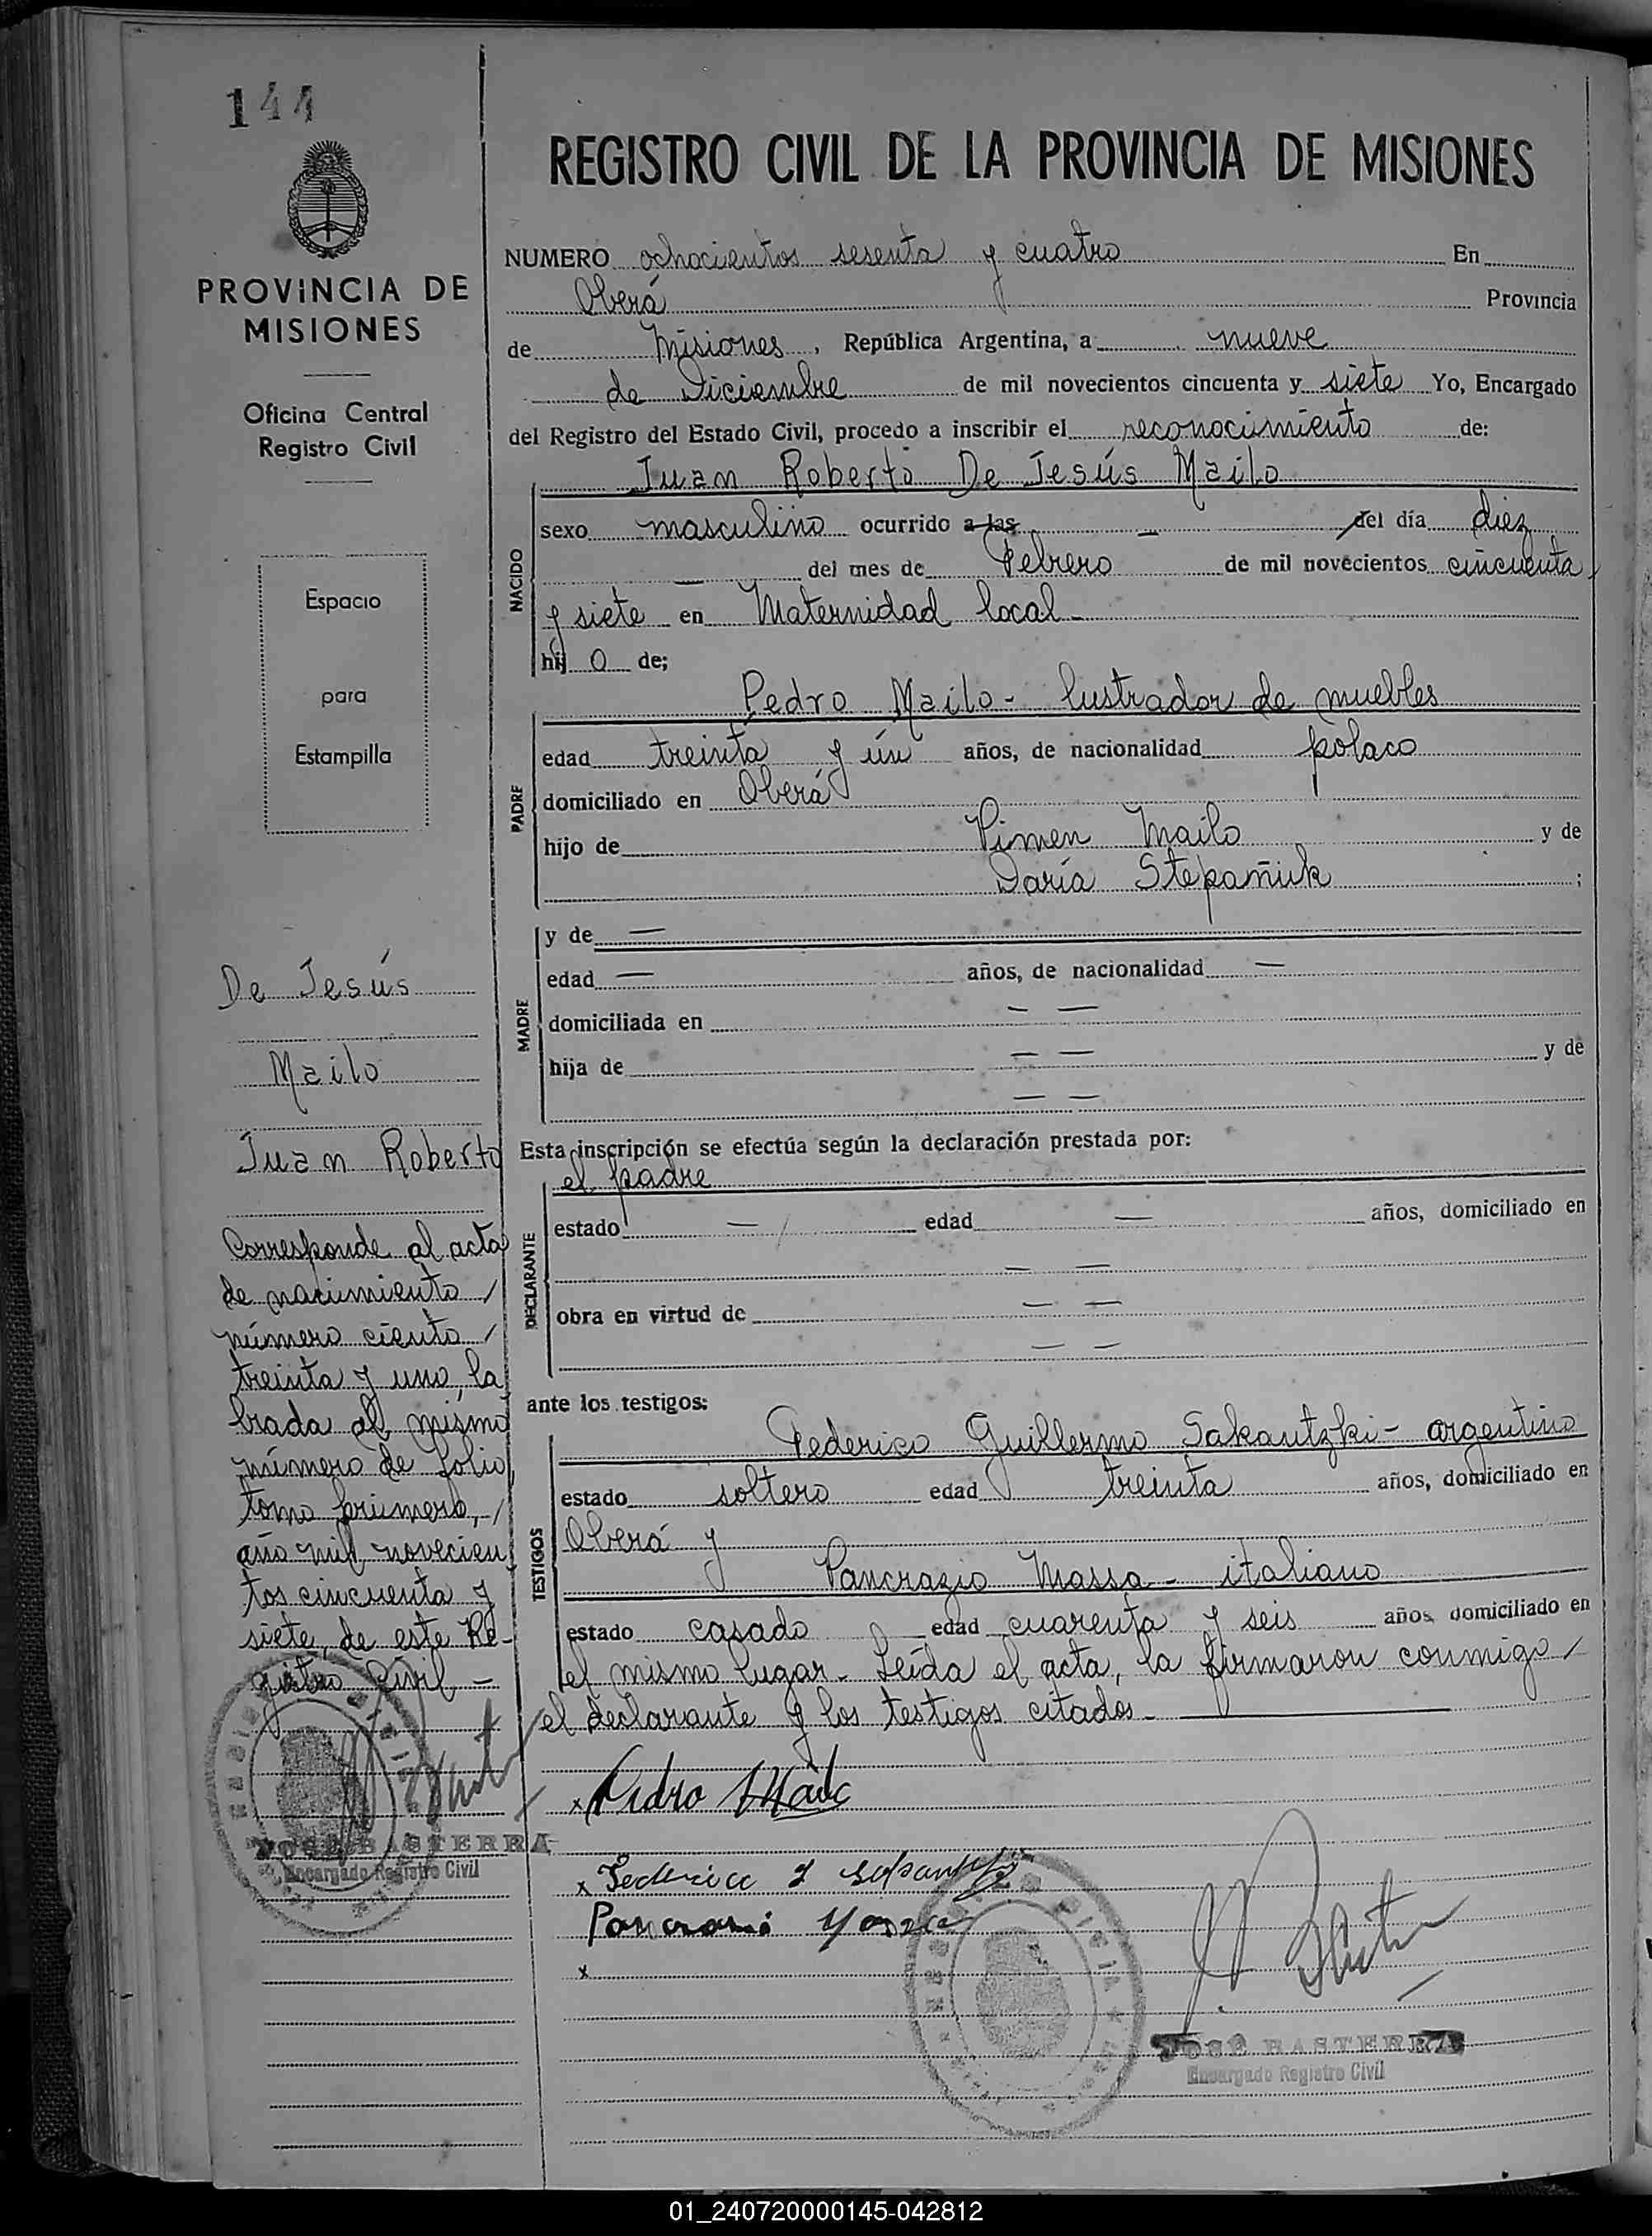 144
PROVINCIA DE
MISIONES
Oficina Central
Registro Civil
Espacio
para
Estampilla
De Jesús
Mailo
Juan Roberto
Corresponde al acta
de nacimiento /
número ciento /
treinta y uno, la
brada al mismo
número de folio,
tomo primero, /
año mil novecien
tos cincuenta y
siete, de este Re-
gistro Civil -
JOSÉ BASTERRA
Encargado Registro Civil
REGISTRO CIVIL DE LA PROVINCIA DE MISIONES
NUMERO ochocientos sesenta y cuatro En
Oberá Provincia
de Misiones, República Argentina, a nueve
de Diciembre de mil novecientos cincuenta y siete Yo, Encargado
del Registro del Estado Civil, procedo a inscribir el reconocimiento de:
Juan Roberto De Jesús Mailo
NACIDO
sexo masculino ocurrido a las — del día diez
— del mes de Febrero de mil novecientos cincuenta
y siete en Maternidad local -
hij o de;
PADRE
Pedro Mailo - lustrador de muebles
edad treinta y ún años, de nacionalidad polaco
domiciliado en Oberá
hijo de Pimen Mailo y de
Daría Stepañuk ;
MADRE
y de —
edad — años, de nacionalidad —
domiciliada en — —
hija de — — y de
— —
Esta inscripción se efectúa según la declaración prestada por:
DECLARANTE
el padre
estado — edad — años, domiciliado en
— —
obra en virtud de — —
— —
ante los testigos:
TESTIGOS
Federico Guillermo Sakautzki - argentino
estado soltero edad treinta años, domiciliado en
Oberá y
Pancrazio Massa - italiano
estado casado edad cuarenta y seis años domiciliado en
el mismo lugar - Leída el acta, la firmaron conmigo /
el declarante y los testigos citados - —
x Pedro Mailo
x Federico
x
JOSÉ BASTERRA
Encargado Registro Civil
01_240720000145-042812